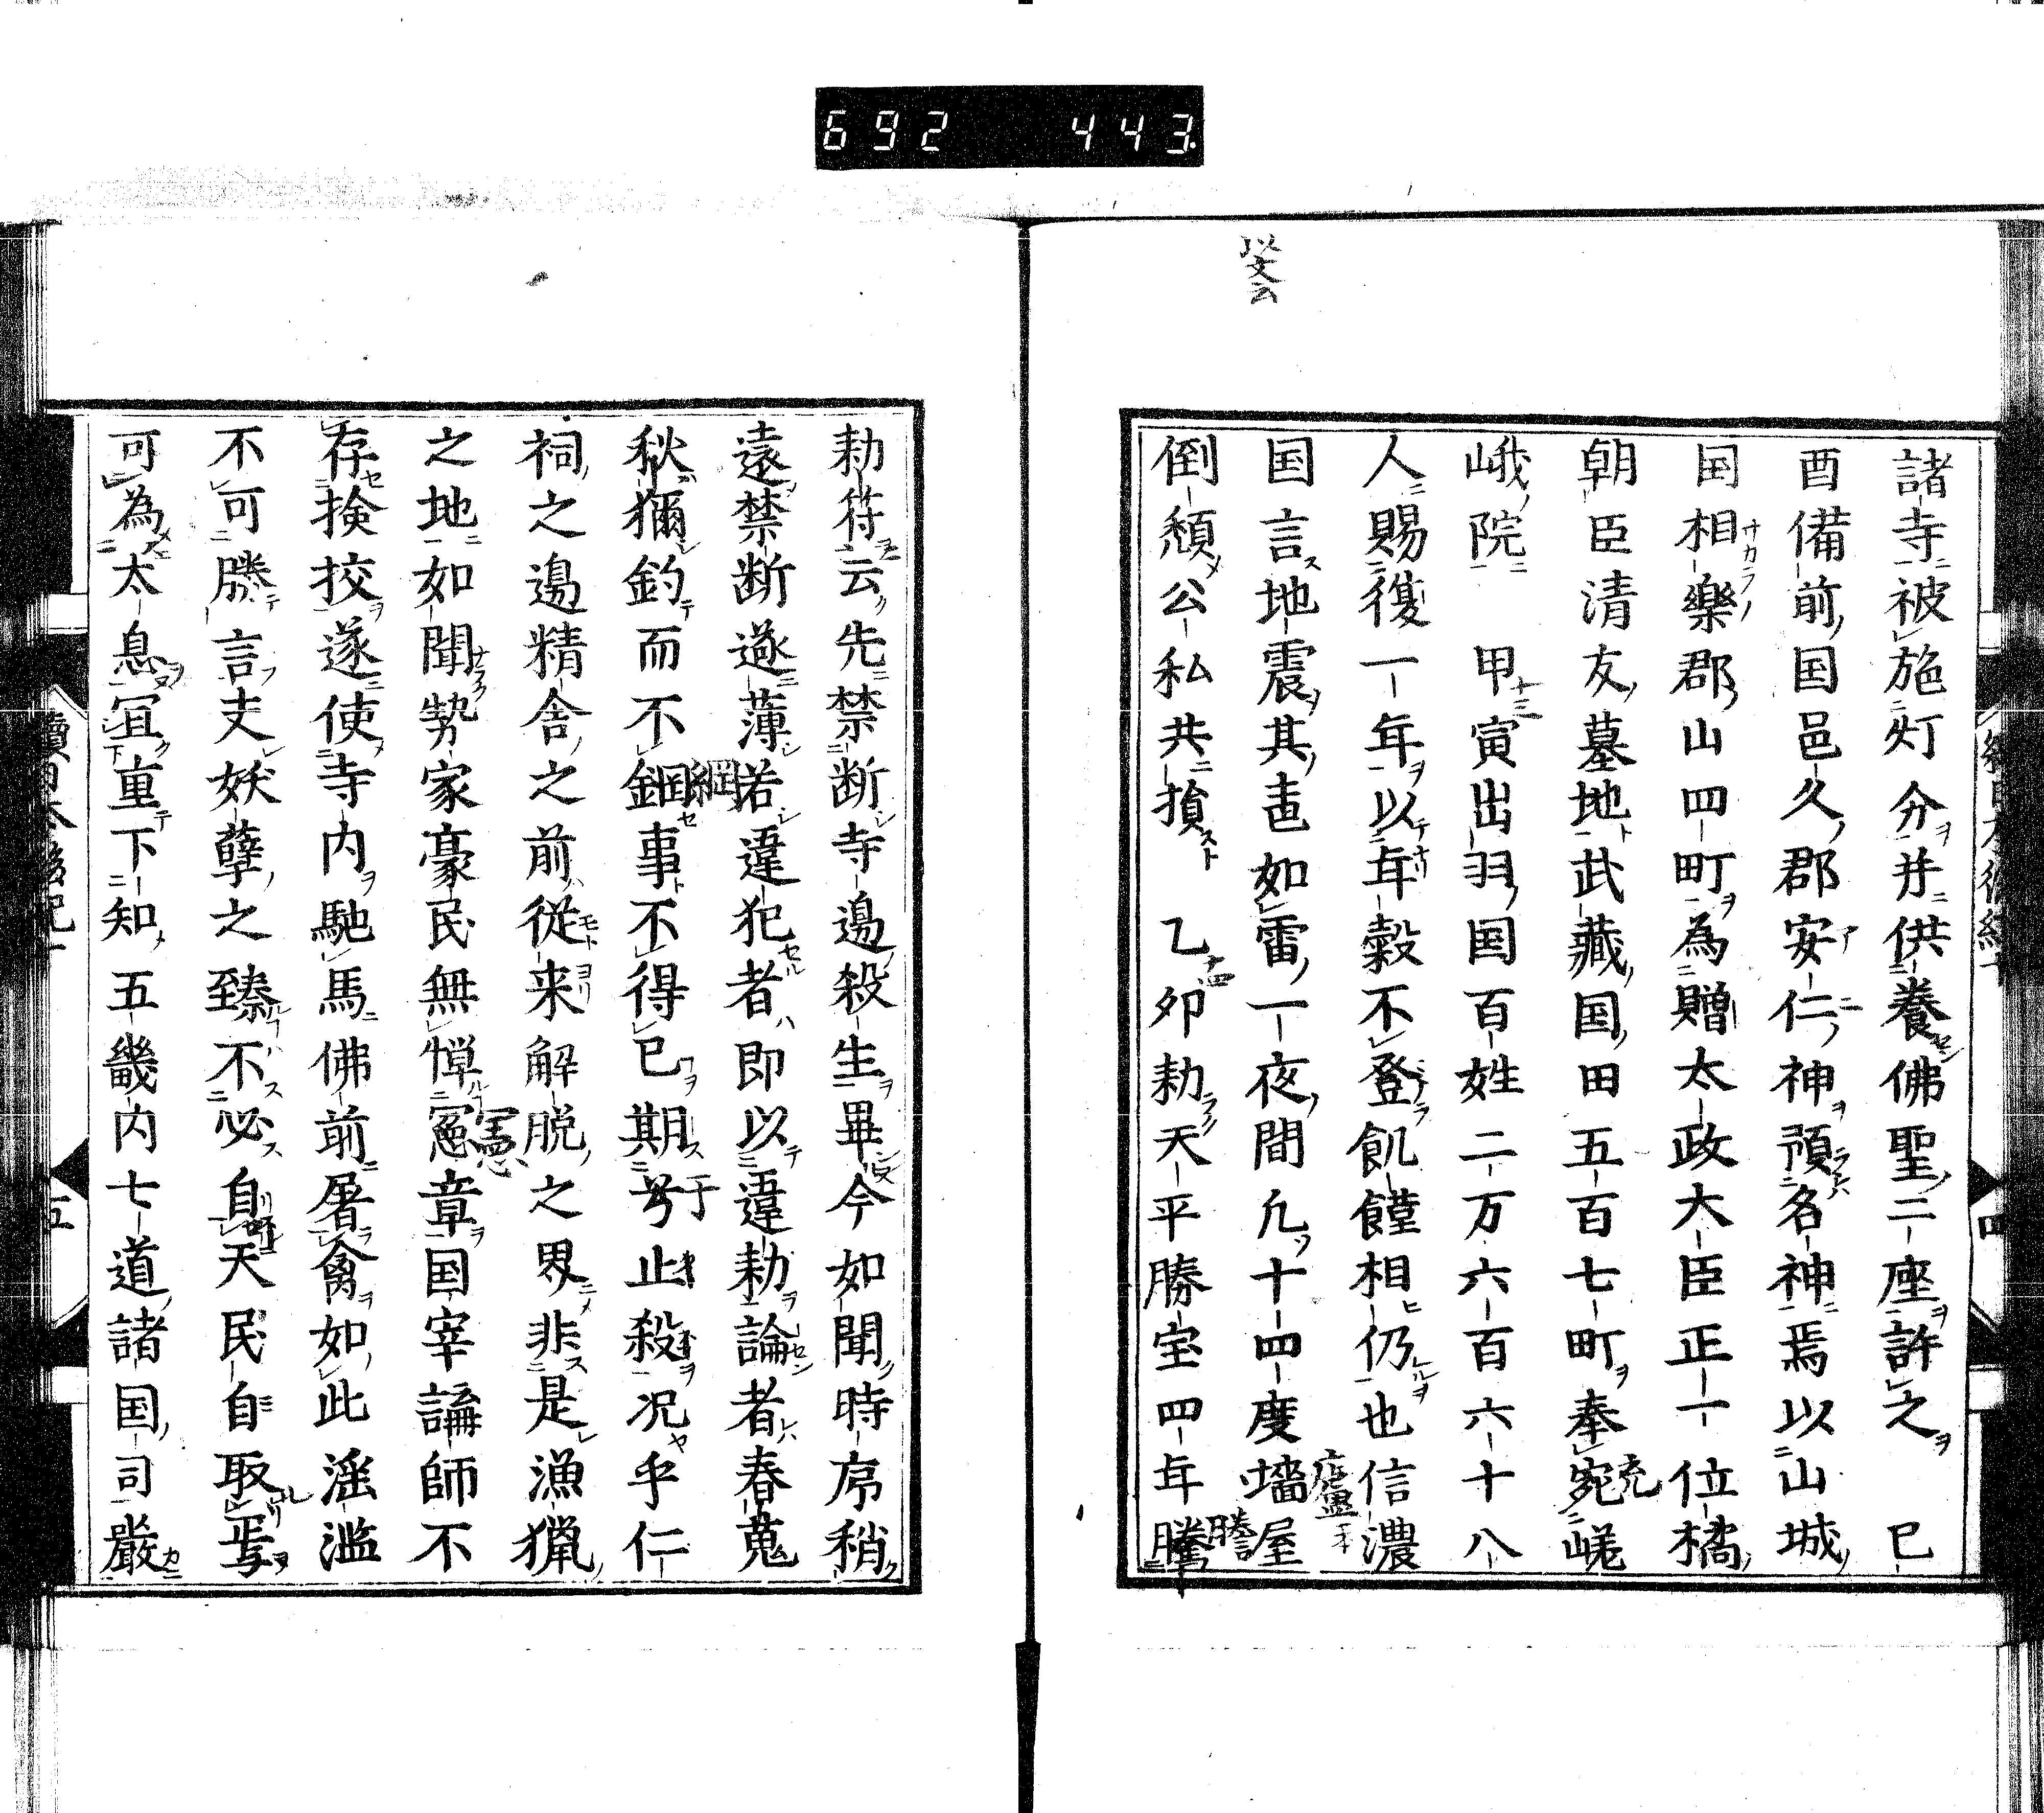 692 443
以文云
諸寺被施灯分并供養佛聖二座許之　巳
酉備前国邑久郡安仁神預名神焉以山城
国相樂郡山四町為贈太政大臣正一位橘
朝臣清友墓地武藏国田五百七町奉宛嵯
峨院　甲寅出羽国百姓二万六百六十八
人賜復一年以年穀不登飢饉相仍也信濃
国言地震其声如雷一夜間凢十四度墻屋
倒頽公私共損　乙夘勅天平勝宝四年騰
勅符云先禁断寺邊殺生畢今如聞時序稍
遠禁断遂薄若違犯者即以違勅論者春蒐
秋獮釣而不鋼事不得已期兮止殺况乎仁
祠之邊精舎之前從来解脱之界非是漁猟
之地如聞勢家豪民無憚寃章国宰論師不
存検挍遂使寺内馳馬佛前屠禽如此滛濫
不可勝言夫妖孽之臻不必自天民自取焉
可為太息冝重下知五畿内七道諸国司嚴